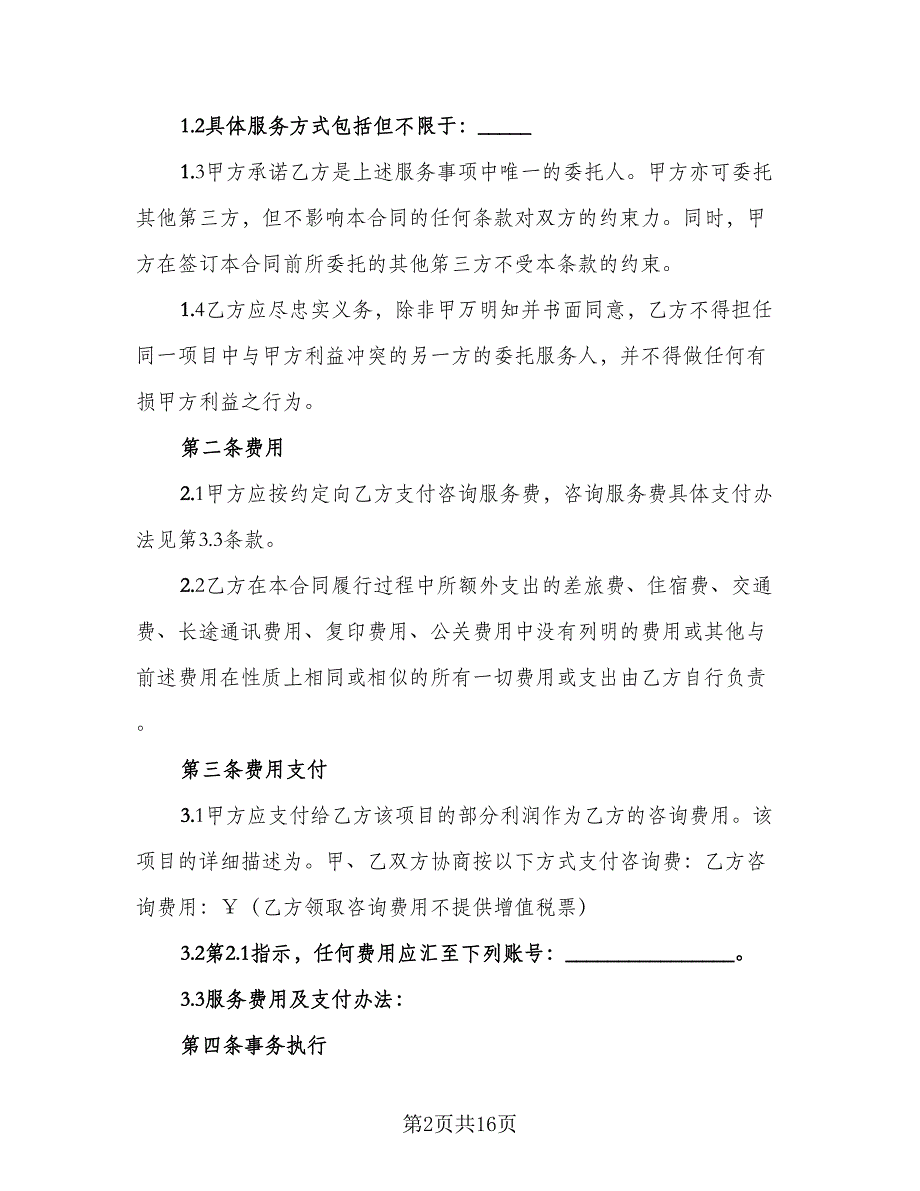 1.2具体服务方式包括但不限于：_____
1.3甲方承诺乙方是上述服务事项中唯一的委托人。甲方亦可委托
其他第三方，但不影响本合同的任何条款对双方的约束力。同时，甲
方在签订本合同前所委托的其他第三方不受本条款的约束。
1.4乙方应尽忠实义务，除非甲万明知并书面同意，乙方不得担任
同一项目中与甲方利益冲突的另一方的委托服务人，并不得做任何有
损甲方利益之行为。
第二条费用
2.1甲方应按约定向乙方支付咨询服务费，咨询服务费具体支付办
法见第3.3条款。
2.2乙方在本合同履行过程中所额外支出的差旅费、住宿费、交通
费、长途通讯费用、复印费用、公关费用中没有列明的费用或其他与
前述费用在性质上相同或相似的所有一切费用或支出由乙方自行负责
。
第三条费用支付
3.1甲方应支付给乙方该项目的部分利润作为乙方的咨询费用。该
项目的详细描述为。甲、乙双方协商按以下方式支付咨询费：乙方咨
询费用：￥（乙方领取咨询费用不提供增值税票）
3.2第2.1指示，任何费用应汇至下列账号：________________。
3.3服务费用及支付办法：
第四条事务执行
第2页共16页